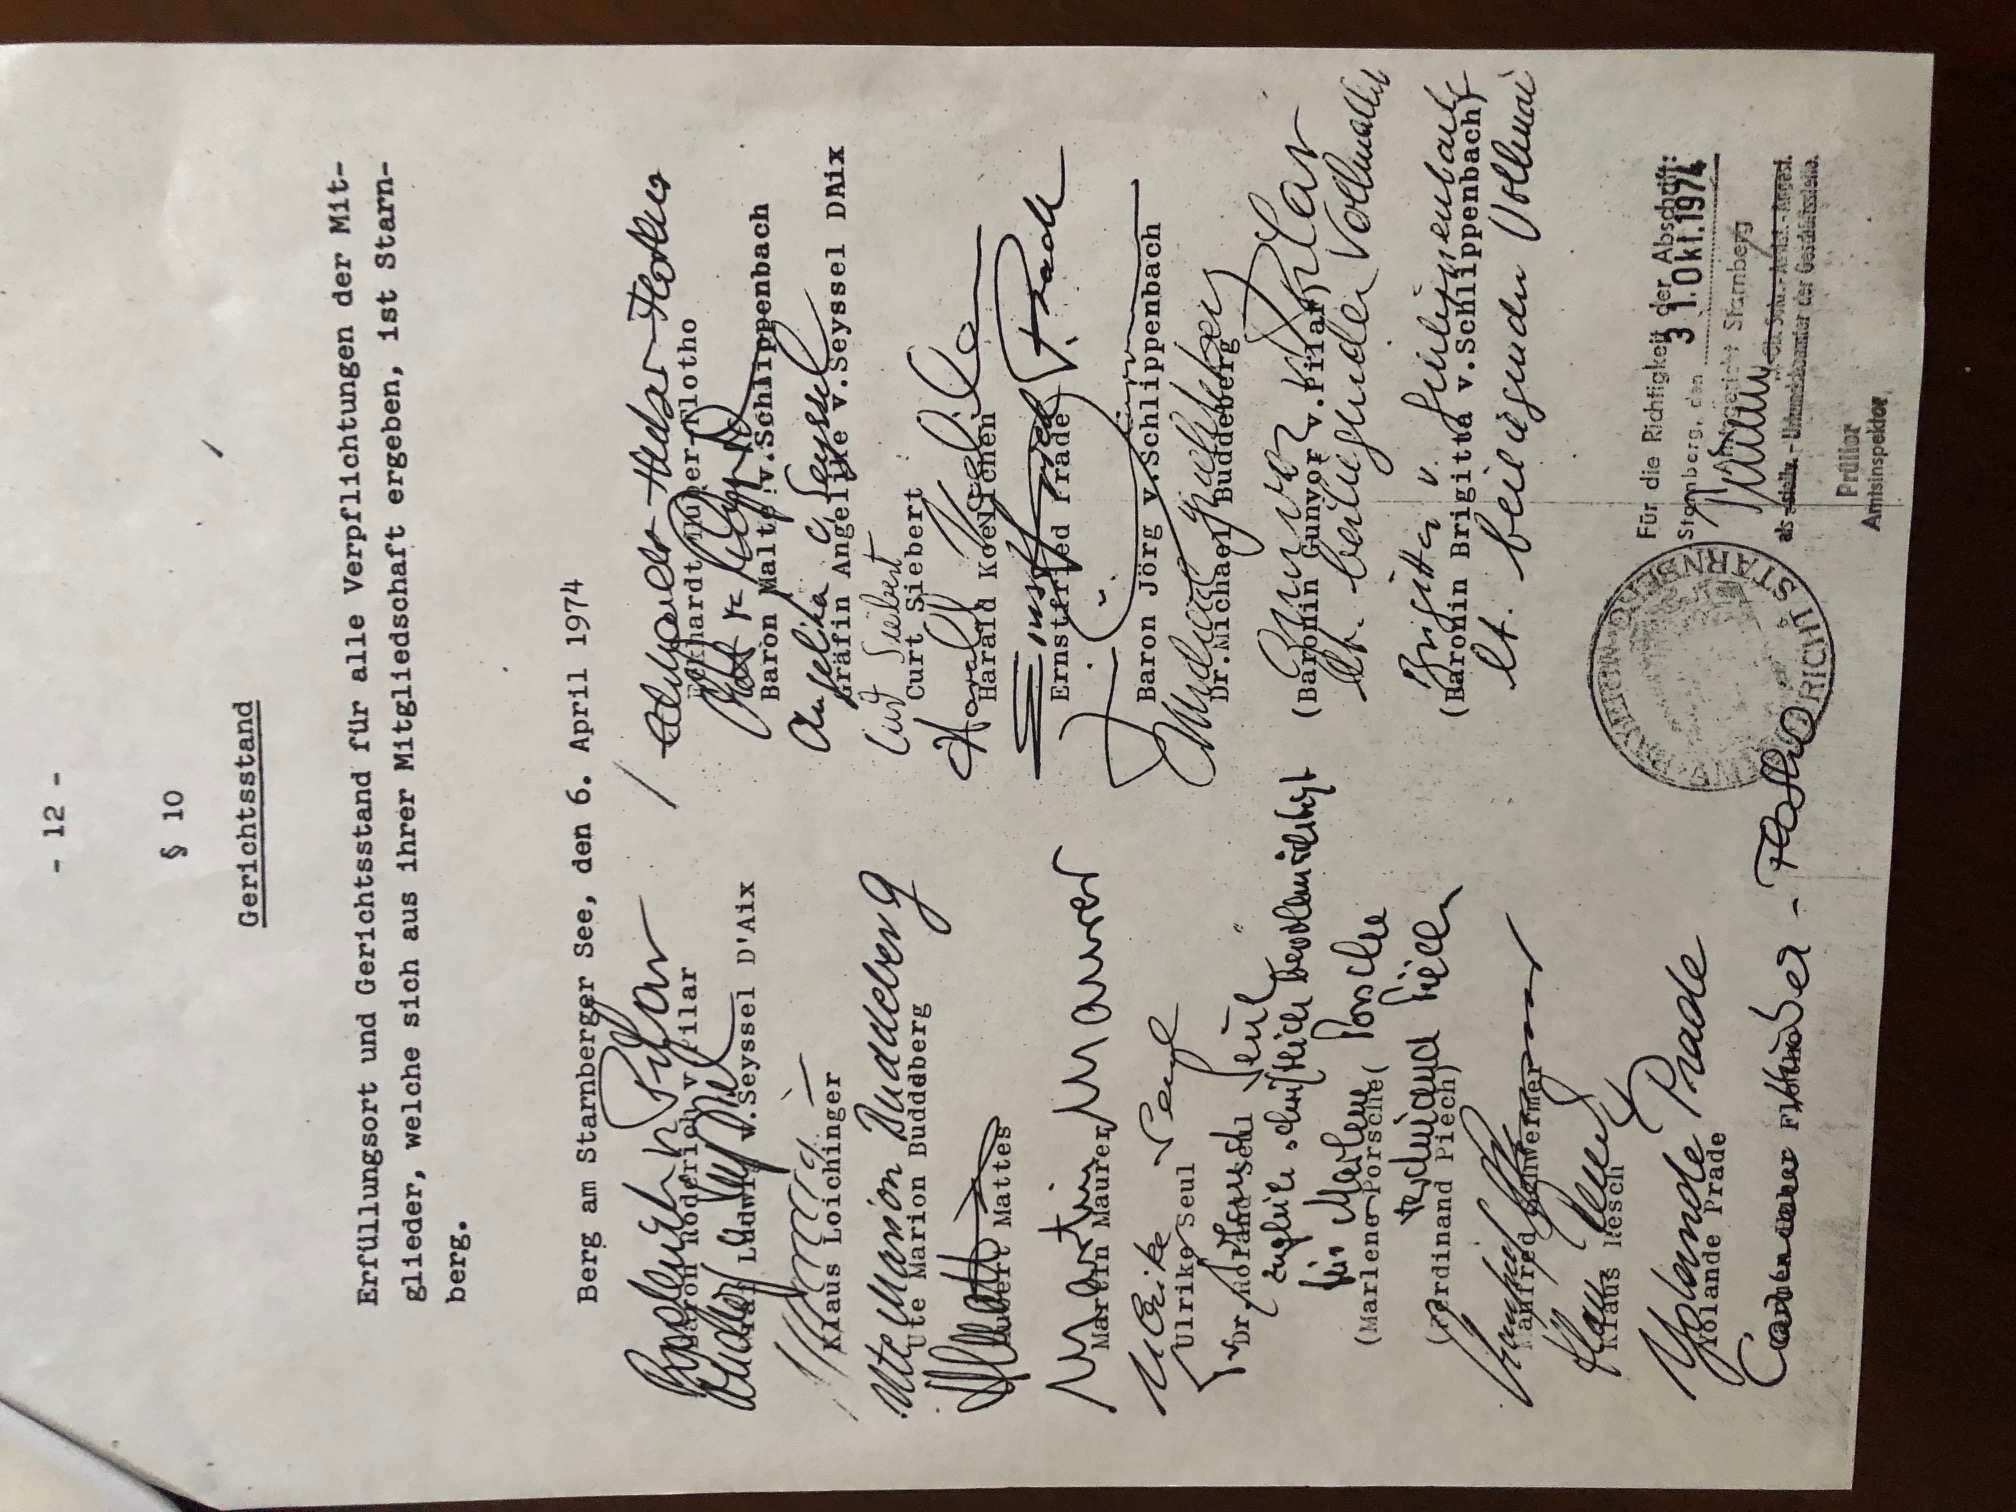 - 12 -
§ 10
Gerichtsstand
Erfüllungsort und Gerichtsstand für alle Verpflichtungen der Mit-
glieder, welche sich aus ihrer Mitgliedschaft ergeben, ist Starn-
berg.
Berg am Starnberger See, den 6. April 1974
Pilar
Baron Roderich v. Pilar
Graf Ludwig v.Seyssel D'Aix
Klaus Loichinger
Ute Marion Buddeberg
Ute Marion Buddberg
Hubert Mattes
Martin Maurer
Martin Maurer
Ulrike Seul
Ulrike Seul
Dr. Horand Seul
zugleich schriftlich bevollmächtigt
für Marlene Porsche
(Marlene Porsche(
Ferdinand Piëch
(Ferdinand Piech)
Manfred Schwermer
Klaus Resch
Klaus Resch
Yolande Prade
Yolande Prade
- Flotho
Eckhardt Huber-Flotho
Baron Malte v.Schlippenbach
Angelika v. Seyssel
Gräfin Angelike v.Seyssel DAix
Curt Siebert
Curt Siebert
Harald Koelichen
Ernstfried Prade
Ernstfried Prade
Baron Jörg v.Schlippenbach
Michael Buddeberg
Dr.Michael Buddeberg
Gunvor Pilar
(Baronin Gunvor v.Pilar)
lt. beiliegender Vollmacht
Brigitta v. Schlippenbach
(Baronin Brigitta v.Schlippenbach)
lt. beiliegender Vollmacht
Für die Richtigkeit der Abschrift:
Starnberg, den 3 1. Okt. 1974
Amtsgericht Starnberg
als stellv. - Urkundsbeamter der Geschäftsstelle.
Prüller
Amtsinspektor
STARNBERG